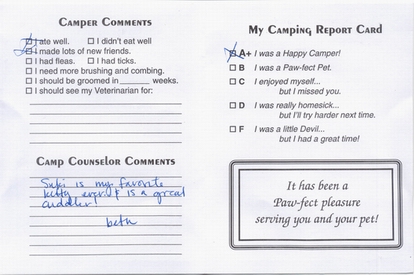 Camper Comments
I ate well. I didn't eat well
I made lots of new friends.
I had fleas. I had ticks.
I need more brushing and combing.
I should be groomed in ______ weeks.
I should see my Veterinarian for:
Camp Counselor Comments
is my favorite
kitty ever & is a great
cuddler!
beth
My Camping Report Card
A+ I was a Happy Camper!
B I was a Paw-fect Pet.
C I enjoyed myself...
but I missed you.
D I was really homesick...
but I'll try harder next time.
F I was a little Devil...
but I had a great time!
It has been a
Paw-fect pleasure
serving you and your pet!